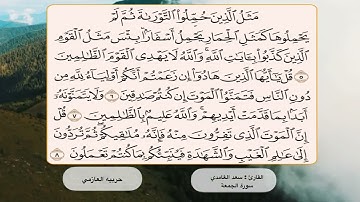 مَثَلُ الَّذِينَ حُمِّلُوا التَّوْرَاةَ ثُمَّ لَمْ
يَحْمِلُوهَا كَمَثَلِ الْحِمَارِ يَحْمِلُ أَسْفَارًا بِئْسَ مَثَلُ الْقَوْمِ
الَّذِينَ كَذَّبُوا بِآيَاتِ اللَّهِ وَاللَّهُ لَا يَهْدِي الْقَوْمَ الظَّالِمِينَ
٥ قُلْ يَا أَيُّهَا الَّذِينَ هَادُوا إِنْ زَعَمْتُمْ أَنَّكُمْ أَوْلِيَاءُ لِلَّهِ مِنْ
دُونِ النَّاسِ فَتَمَنَّوُا الْمَوْتَ إِنْ كُنْتُمْ صَادِقِينَ ٦ وَلَا يَتَمَنَّوْنَهُ
أَبَدًا بِمَا قَدَّمَتْ أَيْدِيهِمْ وَاللَّهُ عَلِيمٌ بِالظَّالِمِينَ ٧ قُلْ
إِنَّ الْمَوْتَ الَّذِي تَفِرُّونَ مِنْهُ فَإِنَّهُ مُلَاقِيكُمْ ثُمَّ تُرَدُّونَ
إِلَى عَالِمِ الْغَيْبِ وَالشَّهَادَةِ فَيُنَبِّئُكُمْ بِمَا كُنْتُمْ تَعْمَلُونَ ٨
القارئ : سعد الغامدي
سورة الجمعة
حربيه العازمي